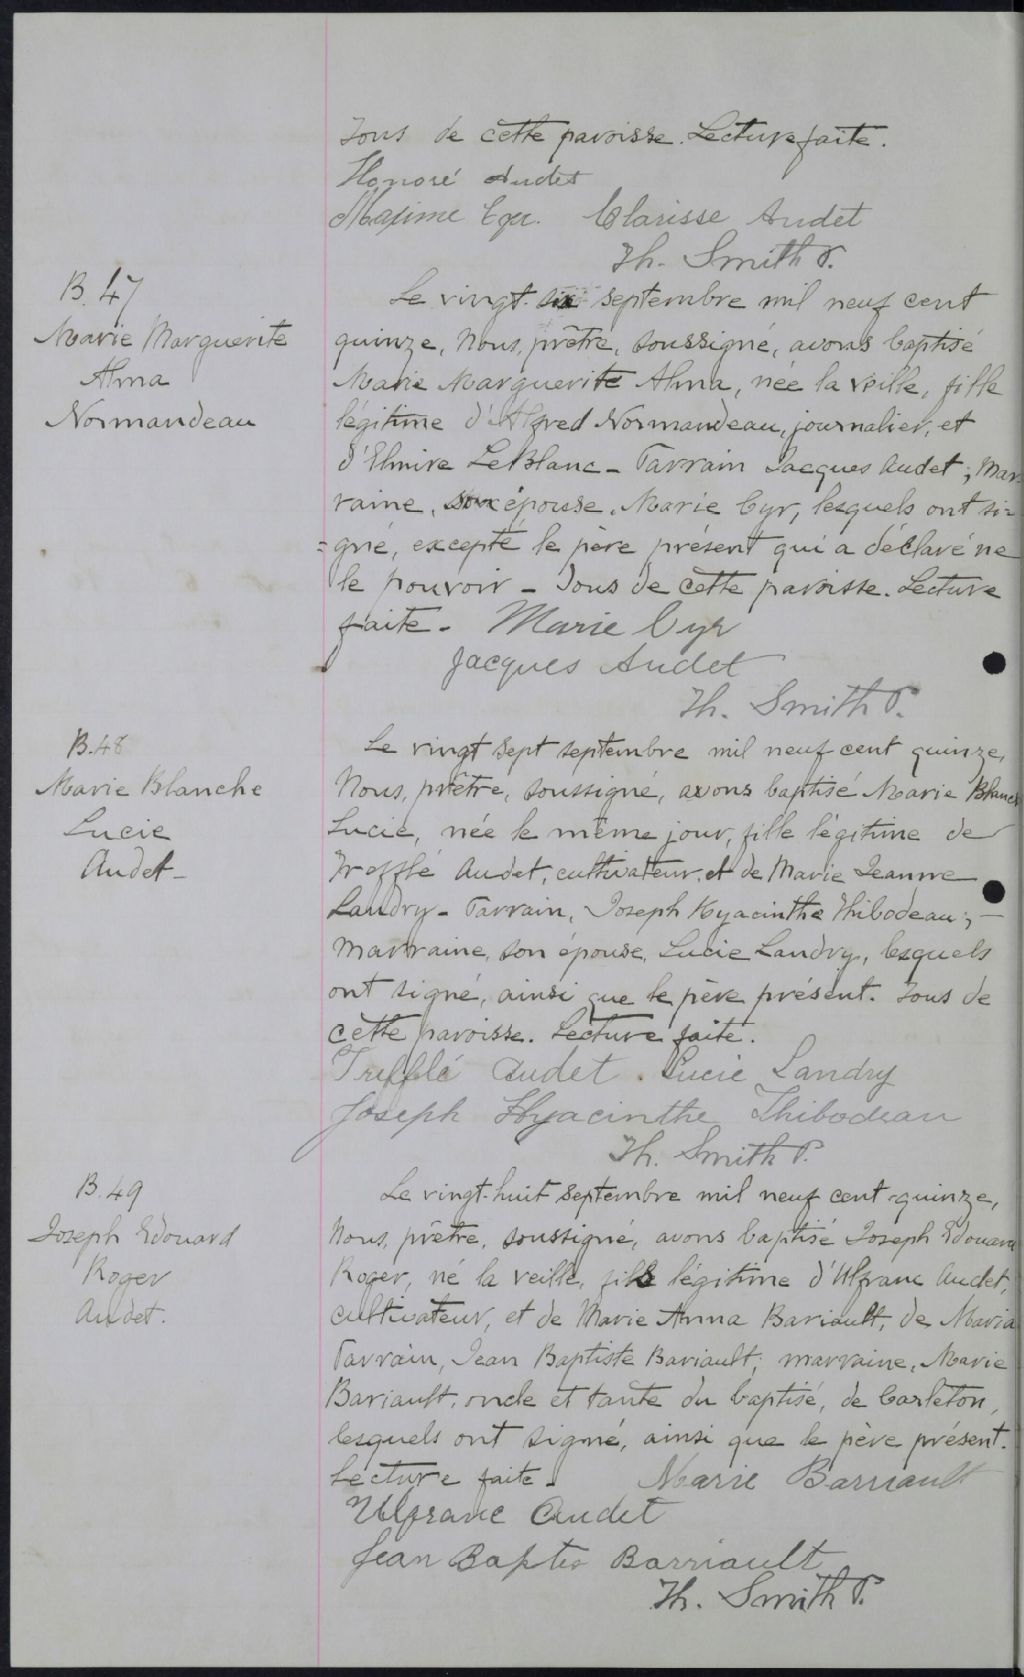 Tous de cette paroisse. Lecture faite.
Honoré Audet
Maxime Cyr. Clarisse Audet
Th. Smith P.
B. 47
Marie Marguerite
Alma
Normandeau
Le vingt-six septembre mil neuf cent
quinze, Nous, prêtre, soussigné, avons baptisé
Marie Marguerite Alma, née la veille, fille
légitime d'Alfred Normandeau, journalier, et
d'Elmire LeBlanc - Parrain Jacques Audet; Mar
raine, son épouse, Marie Cyr, lesquels ont si=
=gné, excepté le père présent qui a déclaré ne
le pouvoir - Tous de cette paroisse. Lecture
faite. Marie Cyr
Jacques Audet
Th. Smith P.
B. 48
Marie Blanche
Lucie
Audet -
Le vingt sept septembre mil neuf cent quinze,
Nous, prêtre, soussigné, avons baptisé Marie Blanche
Lucie, née le même jour, fille légitime de
Trefflé Audet, cultivateur, et de Marie Jeanne
Landry - Parrain, Joseph Hyacinthe Thibodeau; -
marraine, son épouse, Lucie Landry, lesquels
ont signé, ainsi que le père présent. Tous de
cette paroisse. Lecture faite.
Trefflé Audet. Lucie Landry
Joseph Hyacinthe Thibodeau
Th. Smith P.
B. 49
Joseph Edouard
Roger
Audet.
Le vingt-huit septembre mil neuf cent quinze,
Nous, prêtre, soussigné, avons baptisé Joseph Edouard
Roger, né la veille, fils légitime d'Ulfranc Audet,
cultivateur, et de Marie Anna Bariault, de Maria
Parrain, Jean Baptiste Bariault; marraine, Marie
Bariault, oncle et tante du baptisé, de Carleton,
lesquels ont signé, ainsi que le père présent.
Lecture faite - Marie Barriault
Ulfranc Audet
Jean Bapte Barriault
Th. Smith P.